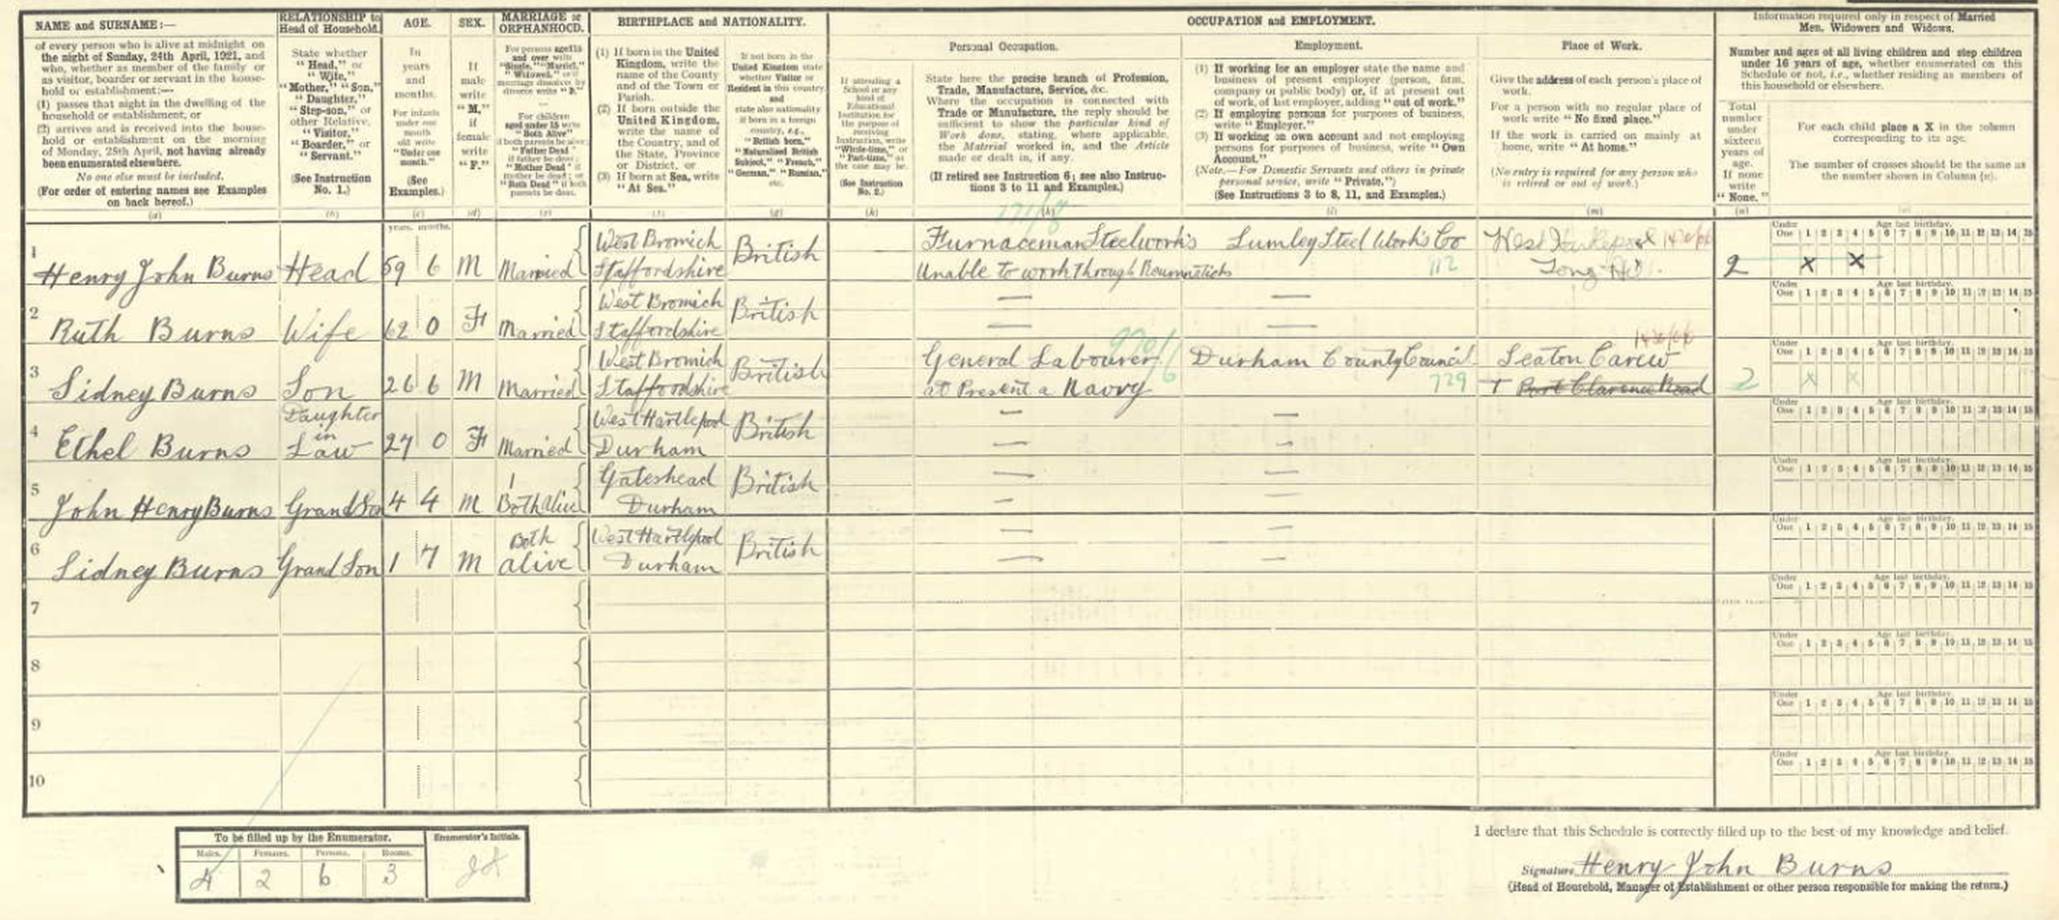 NAME and SURNAME:—
of every person who is alive at midnight on
the night of Sunday, 24th April, 1921, and
who, whether as member of the family or
as visitor, boarder or servant in the house-
hold or establishment:—
(1) passes that night in the dwelling of the
household or establishment, or
(2) arrives and is received into the house-
hold or establishment on the morning
of Monday, 25th April, not having already
been enumerated elsewhere.
No one else must be included.
(For order of entering names see Examples
on back hereof.)
(a)
RELATIONSHIP to
Head of Household.
State whether
"Head," or
"Wife,"
"Mother," "Son,"
"Daughter,"
"Step-son," or
other Relative,
"Visitor,"
"Boarder," or
"Servant."
(See Instruction
No. 1.)
(b)
AGE.
In
years
and
months.
For infants
under one
month
old write
"Under one
month."
(See
Examples.)
(c)
SEX.
If
male
write
"M,"
if
female
write
"F."
(d)
MARRIAGE or
ORPHANHOOD.
For persons aged 15
and over write
"Single," "Married,"
For children
aged under 15 write
"Both Alive"
"Father Dead"
if father be dead;
"Mother Dead" if
mother be dead; or
"Both Dead" if both
parents be dead.
(e)
BIRTHPLACE and NATIONALITY.
(1) If born in the United
Kingdom, write the
name of the County
and of the Town or
Parish.
(2) If born outside the
United Kingdom,
write the name of
the Country, and of
the State, Province
or District, or
(3) If born at Sea, write
"At Sea."
(f)
If not born in the
United Kingdom state
whether Visitor or
Resident in this country,
and
state also nationality
if born in a foreign
country, e.g.,
"British born,"
"Naturalised British
Subject," "French,"
"German," "Russian,"
etc.
(g)
If attending a
School or any
kind of
Educational
Institution for
the purpose of
receiving
Instruction, write
"Whole-time," or
"Part-time," as
the case may be.
(See Instruction
No. 2.)
(h)
OCCUPATION and EMPLOYMENT.
Personal Occupation.
State here the precise branch of Profession,
Trade, Manufacture, Service, &c.
Where the occupation is connected with
Trade or Manufacture, the reply should be
sufficient to show the particular kind of
Work done, stating, where applicable,
the Material worked in, and the Article
made or dealt in, if any.
(If retired see Instruction 6; see also Instruc-
tions 3 to 11 and Examples.)
(k)
Employment.
(1) If working for an employer state the name and
business of present employer (person, firm,
company or public body) or, if at present out
of work, of last employer, adding "out of work."
(2) If employing persons for purposes of business,
write "Employer."
(3) If working on own account and not employing
persons for purposes of business, write "Own
Account."
(Note.—For Domestic Servants and others in private
personal service, write "Private.")
(See Instructions 3 to 8, 11, and Examples.)
(l)
Place of Work.
Give the address of each person's place of
work.
For a person with no regular place of
work write "No fixed place."
If the work is carried on mainly at
home, write "At home."
(No entry is required for any person who
is retired or out of work.)
(m)
Information required only in respect of Married
Men, Widowers and Widows.
Number and ages of all living children and step children
under 16 years of age, whether enumerated on this
Schedule or not, i.e., whether residing as members of
this household or elsewhere.
Total
number
under
sixteen
years of
age.
If none
write
"None."
(n)
For each child place a X in the column
corresponding to its age.
The number of crosses should be the same as
the number shown in Column (n).
(o)
years. months.
1 Henry John Burns Head 59 6 M Married West Bromich Staffordshire British Furnaceman Steelworks Lumley Steel Works Co West Hartlepool
Unable to work through Reumatick 112 2 X X
2 Ruth Burns Wife 62 0 F Married West Bromich Staffordshire British — —
3 Sidney Burns Son 26 6 M Married West Bromich Staffordshire British General Labourer Durham County Council Seaton Carew
at Present a Navvy 729 Port Clarence Road 2 X X
4 Ethel Burns Daughter in Law 27 0 F Married West Hartlepool Durham British — —
5 John Henry Burns GrandSon 4 4 M Both Alive Gateshead Durham British — —
6 Sidney Burns Grand Son 1 7 M Both alive West Hartlepool Durham British — —
7
8
9
10
Under One 1 2 3 4 5 6 7 8 9 10 11 12 13 14 15
Age last birthday.
To be filled up by the Enumerator.
Males. Females. Persons. Rooms.
4 2 6 3
Enumerator's Initials.
I declare that this Schedule is correctly filled up to the best of my knowledge and belief.
Signature Henry John Burns
(Head of Household, Manager of Establishment or other person responsible for making the return.)